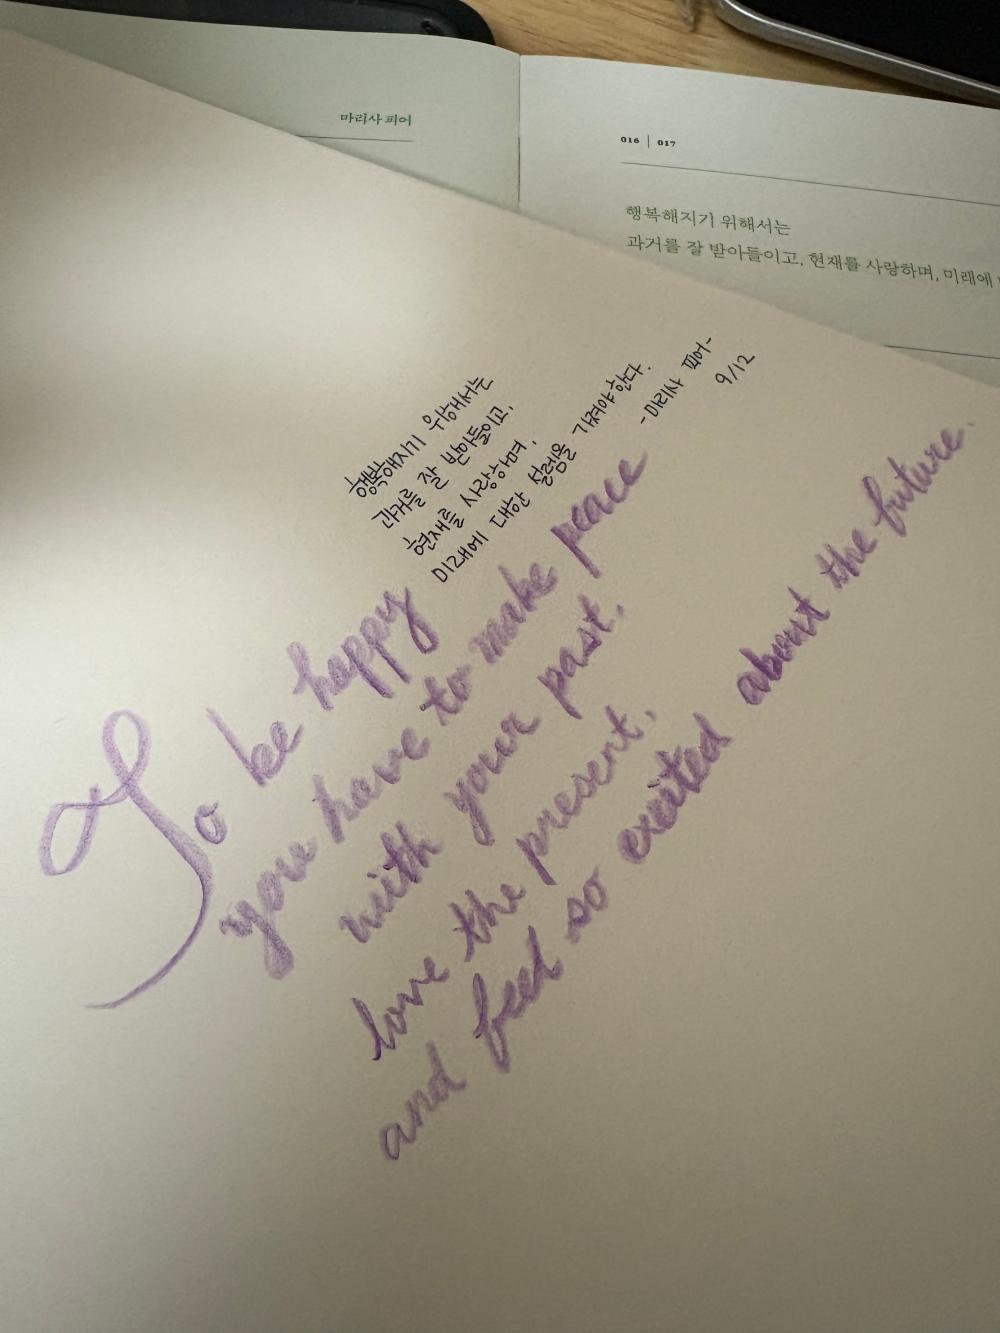 마리사 피어
016 | 017
행복해지기 위해서는
과거를 잘 받아들이고, 현재를 사랑하며, 미래에
행복해지기 위해서는
과거를 잘 받아들이고,
현재를 사랑하며,
미래에 대한 설렘을 가져야한다.
-마리사 피어-
9/12
To be happy
you have to make peace
with your past,
love the present,
and feel so excited about the future.